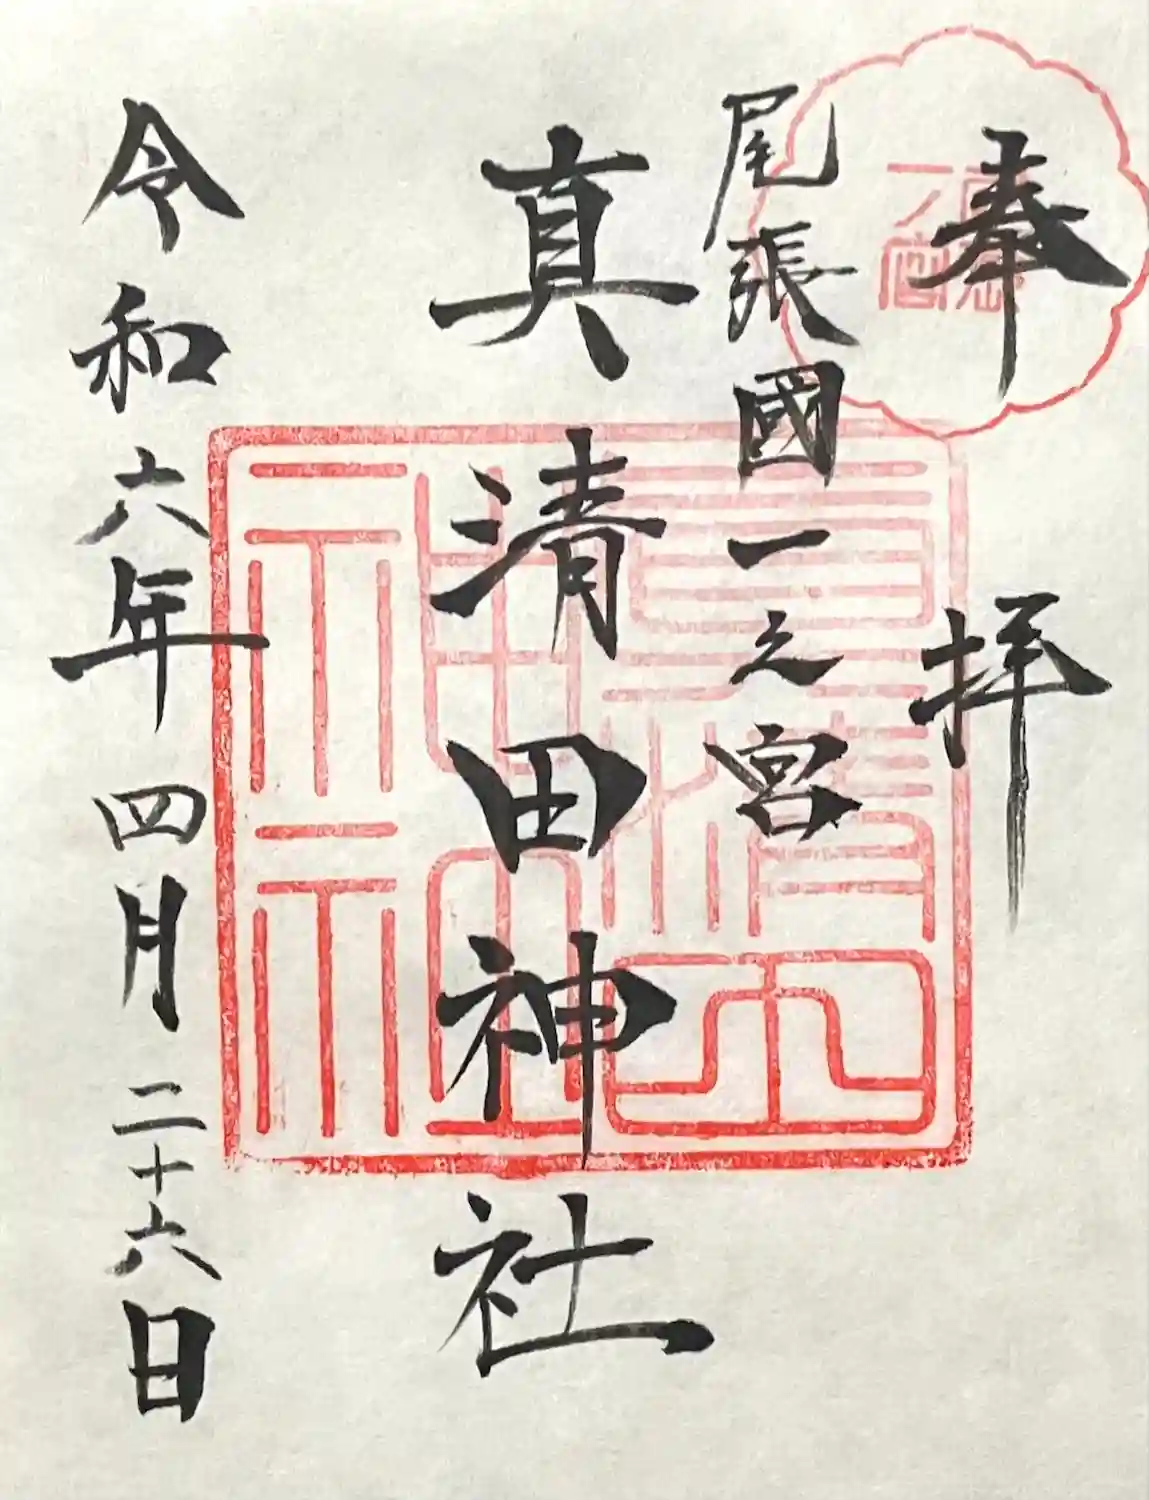 奉拝
尾張國一之宮
真清田神社
令和六年四月二十六日